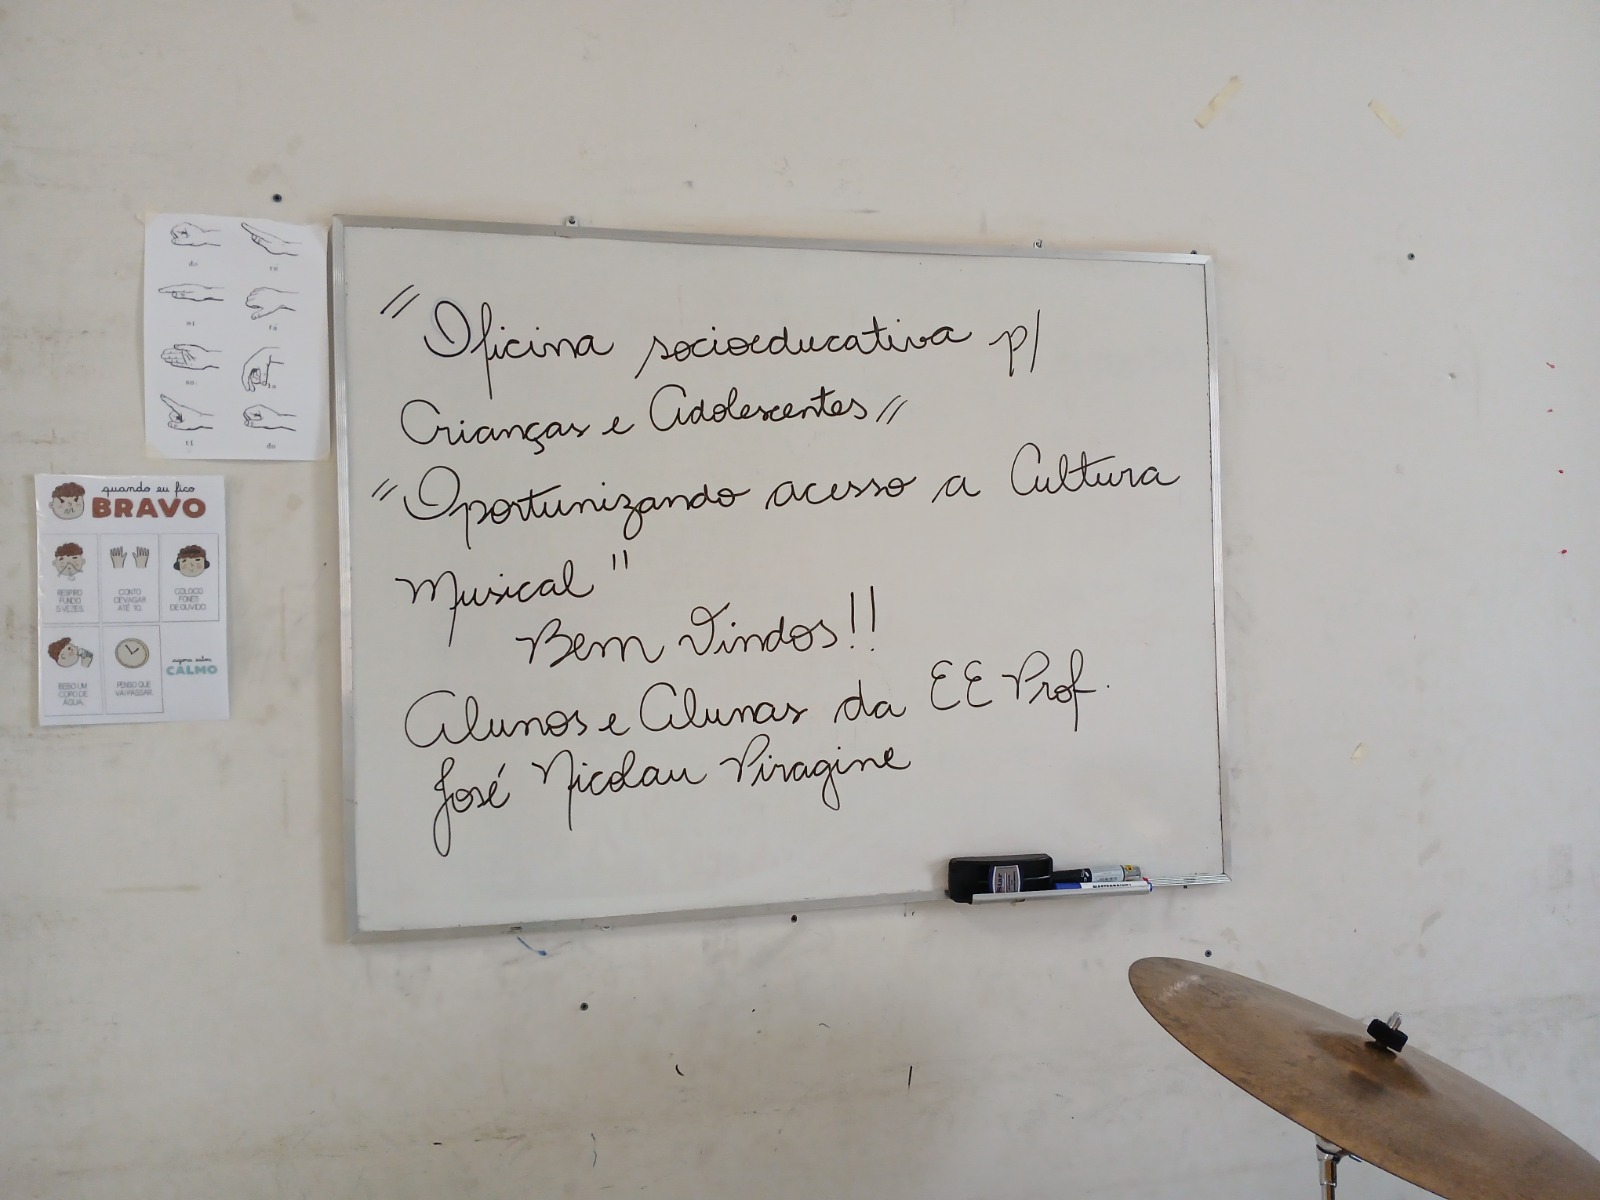 do
re
mi
fá
sol
la
ti
do
quando eu fico
BRAVO
RESPIRO FUNDO 5 VEZES.
CONTO DEVAGAR ATÉ 10.
COLOCO FONES DE OUVIDO.
BEBO UM COPO DE ÁGUA.
PENSO QUE VAI PASSAR.
agora estou
CALMO
"Oficina socioeducativa p/
Crianças e Adolescentes"
"Oportunizando acesso a Cultura
Musical"
Bem Vindos!!
Alunos e Alunas da EE Prof.
José Nicolau Piragine